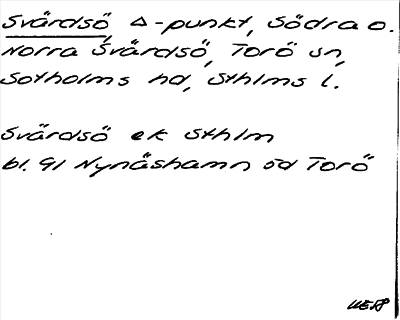 Svärdsö, △-punkt, Södra o.
Norra Svärdsö, Torö sn,
Sotholms hd, Sthlms l.
Svärdsö ek Sthlm
bl. 91 Nynäshamn öd Torö